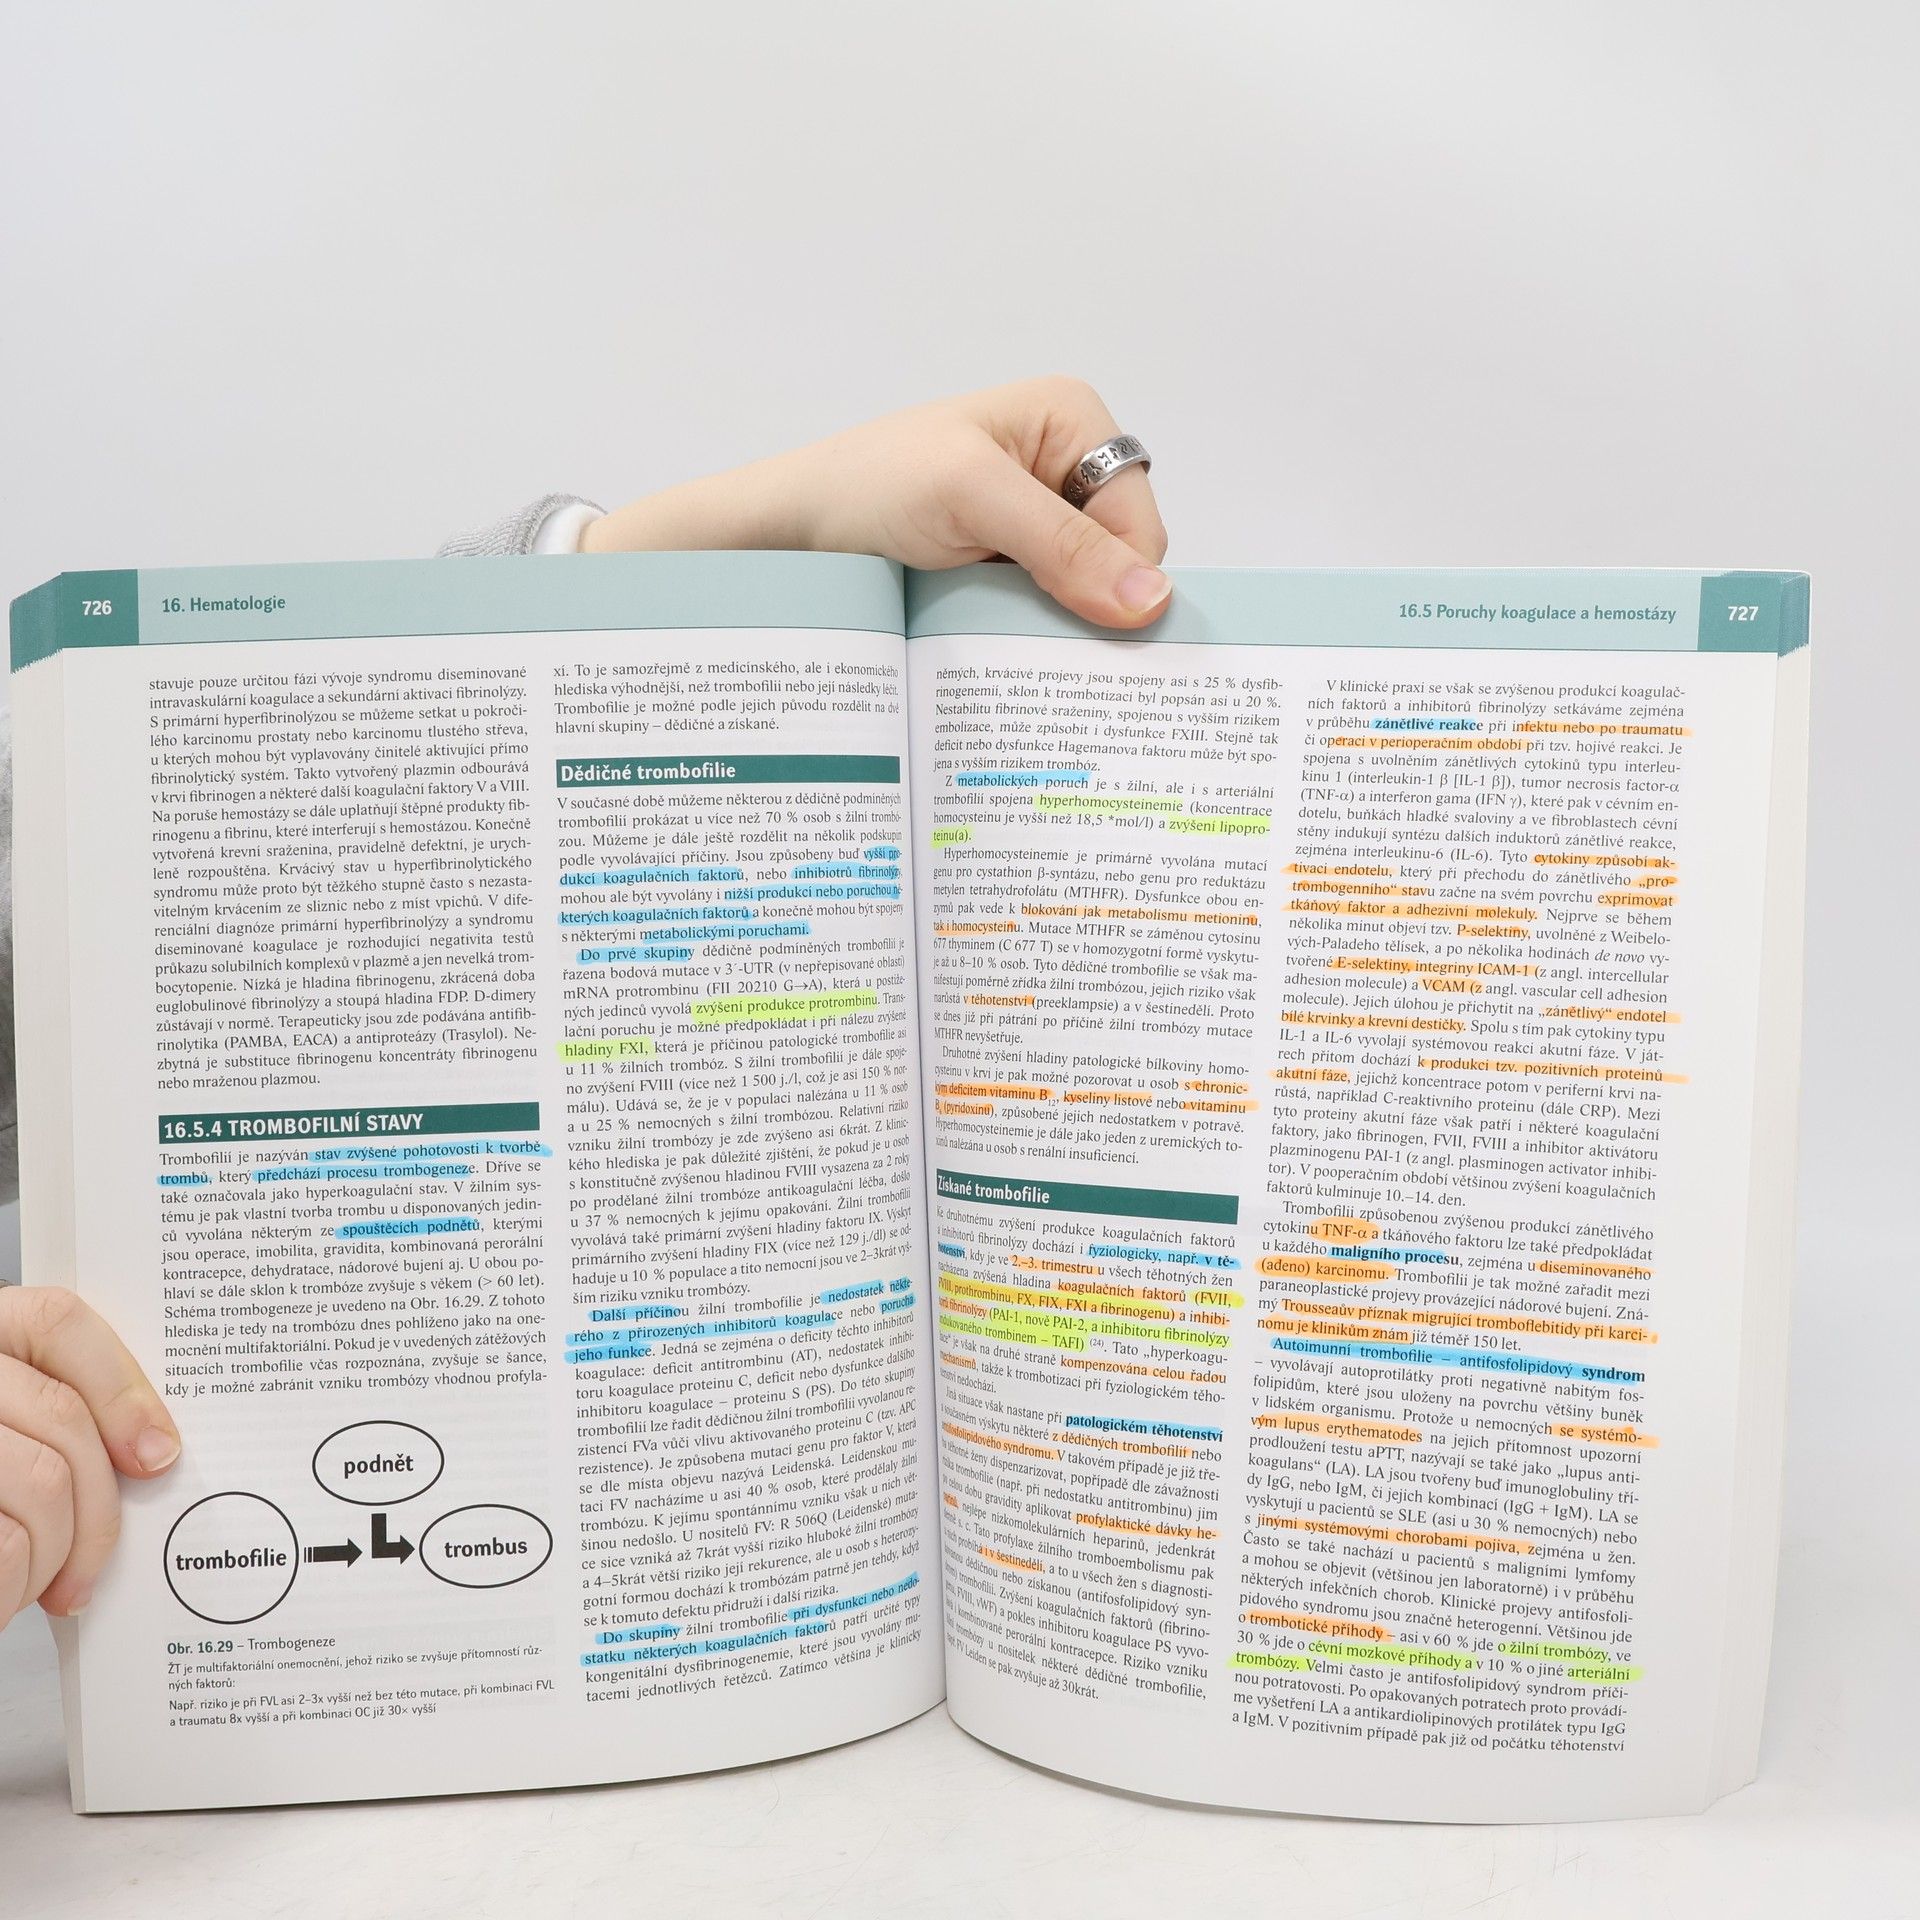 726
16. Hematologie
stavuje pouze určitou fázi vývoje syndromu diseminované
intravaskulární koagulace a sekundární aktivaci fibrinolýzy.
S primární hyperfibrinolýzou se můžeme setkat u pokroči-
lého karcinomu prostaty nebo karcinomu tlustého střeva,
u kterých mohou být vyplavovány činitelé aktivující přímo
fibrinolytický systém. Takto vytvořený plazmin odbourává
v krvi fibrinogen a některé další koagulační faktory V a VIII.
Na poruše hemostázy se dále uplatňují štěpné produkty fib-
rinogenu a fibrinu, které interferují s hemostázou. Konečně
vytvořená krevní sraženina, pravidelně defektní, je urych-
leně rozpouštěna. Krvácivý stav u hyperfibrinolytického
syndromu může proto být těžkého stupně často s nezasta-
vitelným krvácením ze sliznic nebo z míst vpichů. V dife-
renciální diagnóze primární hyperfibrinolýzy a syndromu
diseminované koagulace je rozhodující negativita testů
průkazu solubilních komplexů v plazmě a jen nevelká trom-
bocytopenie. Nízká je hladina fibrinogenu, zkrácená doba
euglobulinové fibrinolýzy a stoupá hladina FDP. D-dimery
zůstávají v normě. Terapeuticky jsou zde podávána antifib-
rinolytika (PAMBA, EACA) a antiproteázy (Trasylol). Ne-
zbytná je substituce fibrinogenu koncentráty fibrinogenu
nebo mraženou plazmou.
16.5.4 TROMBOFILNÍ STAVY
Trombofilií je nazýván stav zvýšené pohotovosti k tvorbě
trombů, který předchází procesu trombogeneze. Dříve se
také označovala jako hyperkoagulační stav. V žilním sys-
tému je pak vlastní tvorba trombu u disponovaných jedin-
ců vyvolána některým ze spouštěcích podnětů, kterými
jsou operace, imobilita, gravidita, kombinovaná perorální
kontracepce, dehydratace, nádorové bujení aj. U obou po-
hlaví se dále sklon k trombóze zvyšuje s věkem (> 60 let).
Schéma trombogeneze je uvedeno na Obr. 16.29. Z tohoto
hlediska je tedy na trombózu dnes pohlíženo jako na one-
mocnění multifaktoriální. Pokud je v uvedených zátěžových
situacích trombofilie včas rozpoznána, zvyšuje se šance,
kdy je možné zabránit vzniku trombózy vhodnou profyla-
podnět
trombofilie
trombus
Obr. 16.29 – Trombogeneze
ŽT je multifaktoriální onemocnění, jehož riziko se zvyšuje přítomností růz-
ných faktorů:
Např. riziko je při FVL asi 2–3x vyšší než bez této mutace, při kombinaci FVL
a traumatu 8x vyšší a při kombinaci OC již 30× vyšší
xí. To je samozřejmě z medicínského, ale i ekonomického
hlediska výhodnější, než trombofilii nebo její následky léčit.
Trombofilie je možné podle jejich původu rozdělit na dvě
hlavní skupiny – dědičné a získané.
Dědičné trombofilie
V současné době můžeme některou z dědičně podmíněných
trombofilií prokázat u více než 70 % osob s žilní trombó-
zou. Můžeme je dále ještě rozdělit na několik podskupin
podle vyvolávající příčiny. Jsou způsobeny buď vyšší pro-
dukcí koagulačních faktorů, nebo inhibiotrů fibrinolýzy,
mohou ale být vyvolány i nižší produkcí nebo poruchou ně-
kterých koagulačních faktorů a konečně mohou být spojeny
s některými metabolickými poruchami.
Do prvé skupiny dědičně podmíněných trombofilií je
řazena bodová mutace v 3´-UTR (v nepřepisované oblasti)
mRNA protrombinu (FII 20210 G→A), která u postiže-
ných jedinců vyvolá zvýšení produkce protrombinu. Trans-
lační poruchu je možné předpokládat i při nálezu zvýšené
hladiny FXI, která je příčinou patologické trombofilie asi
u 11 % žilních trombóz. S žilní trombofilií je dále spoje-
no zvýšení FVIII (více než 1 500 j./l, což je asi 150 % nor-
málu). Udává se, že je v populaci nalézána u 11 % osob
a u 25 % nemocných s žilní trombózou. Relativní riziko
vzniku žilní trombózy je zde zvýšeno asi 6krát. Z klinic-
kého hlediska je pak důležité zjištění, že pokud je u osob
s konstitučně zvýšenou hladinou FVIII vysazena za 2 roky
po prodělané žilní trombóze antikoagulační léčba, došlo
u 37 % nemocných k jejímu opakování. Žilní trombofilii
vyvolává také primární zvýšení hladiny faktoru IX. Výskyt
primárního zvýšení hladiny FIX (více než 129 j./dl) se od-
haduje u 10 % populace a tito nemocní jsou ve 2–3krát vyš-
ším riziku vzniku trombózy.
Další příčinou žilní trombofilie je nedostatek někte-
rého z přirozených inhibitorů koagulace nebo porucha
jeho funkce. Jedná se zejména o deficity těchto inhibitorů
koagulace: deficit antitrombinu (AT), nedostatek inhibi-
toru koagulace proteinu C, deficit nebo dysfunkce dalšího
inhibitoru koagulace – proteinu S (PS). Do této skupiny
trombofilií lze řadit dědičnou žilní trombofilii vyvolanou re-
zistencí FVa vůči vlivu aktivovaného proteinu C (tzv. APC
rezistence). Je způsobena mutací genu pro faktor V, která
se dle místa objevu nazývá Leidenská. Leidenskou mu-
taci FV nacházíme u asi 40 % osob, které prodělaly žilní
trombózu. K jejímu spontánnímu vzniku však u nich vět-
šinou nedošlo. U nositelů FV: R 506Q (Leidenské) muta-
ce sice vzniká až 7krát vyšší riziko hluboké žilní trombózy
a 4–5krát větší riziko její rekurence, ale u osob s heterozy-
gotní formou dochází k trombózám patrně jen tehdy, když
se k tomuto defektu přidruží i další rizika.
Do skupiny žilní trombofilie při dysfunkci nebo nedo-
statku některých koagulačních faktorů patří určité typy
kongenitální dysfibrinogenemie, které jsou vyvolány mu-
tacemi jednotlivých řetězců. Zatímco většina je klinicky
16.5 Poruchy koagulace a hemostázy
727
němých, krvácivé projevy jsou spojeny asi s 25 % dysfib-
rinogenemií, sklon k trombotizaci byl popsán asi u 20 %.
Nestabilitu fibrinové sraženiny, spojenou s vyšším rizikem
embolizace, může způsobit i dysfunkce FXIII. Stejně tak
deficit nebo dysfunkce Hagemanova faktoru může být spo-
jena s vyšším rizikem trombóz.
Z metabolických poruch je s žilní, ale i s arteriální
trombofilií spojena hyperhomocysteinemie (koncentrace
homocysteinu je vyšší než 18,5 *mol/l) a zvýšení lipopro-
teinu(a).
Hyperhomocysteinemie je primárně vyvolána mutací
genu pro cystathion β-syntázu, nebo genu pro reduktázu
metylen tetrahydrofolátu (MTHFR). Dysfunkce obou en-
zymů pak vede k blokování jak metabolismu metioninu,
tak i homocysteinu. Mutace MTHFR se záměnou cytosinu
677 thyminem (C 677 T) se v homozygotní formě vyskytu-
je až u 8–10 % osob. Tyto dědičné trombofilie se však ma-
nifestují poměrně zřídka žilní trombózou, jejich riziko však
narůstá v těhotenství (preeklampsie) a v šestinedělí. Proto
se dnes již při pátrání po příčině žilní trombózy mutace
MTHFR nevyšetřuje.
Druhotné zvýšení hladiny patologické bílkoviny homo-
cysteinu v krvi je pak možné pozorovat u osob s chronic-
kým deficitem vitaminu B12, kyseliny listové nebo vitaminu
B6 (pyridoxinu), způsobené jejich nedostatkem v potravě.
Hyperhomocysteinemie je dále jako jeden z uremických to-
xinů nalézána u osob s renální insuficiencí.
Získané trombofilie
Ke druhotnému zvýšení produkce koagulačních faktorů
a inhibitorů fibrinolýzy dochází i fyziologicky, např. v tě-
hotenství, kdy je ve 2.–3. trimestru u všech těhotných žen
nacházena zvýšená hladina koagulačních faktorů (FVII,
FVIII, prothrombinu, FX, FIX, FXI a fibrinogenu) a inhibi-
torů fibrinolýzy (PAI-1, nově PAI-2, a inhibitoru fibrinolýzy
indukovaného trombinem – TAFI) (24). Tato „hyperkoagu-
lace“ je však na druhé straně kompenzována celou řadou
mechanismů, takže k trombotizaci při fyziologickém těho-
tenství nedochází.
Jiná situace však nastane při patologickém těhotenství
a současném výskytu některé z dědičných trombofilií nebo
antifosfolipidového syndromu. V takovém případě je již tře-
ba těhotné ženy dispenzarizovat, popřípadě dle závažnosti
rizika trombofilie (např. při nedostatku antitrombinu) jim
po celou dobu gravidity aplikovat profylaktické dávky he-
parinů, nejlépe nízkomolekulárních heparinů, jedenkrát
denně s. c. Tato profylaxe žilního tromboembolismu pak
u nich probíhá i v šestinedělí, a to u všech žen s diagnosti-
kovanou dědičnou nebo získanou (antifosfolipidový syn-
drom) trombofilií. Zvýšení koagulačních faktorů (fibrino-
genu, FVII, FVIII, vWF) a pokles inhibitoru koagulace PS vyvo-
lává i kombinované perorální kontracepce. Riziko vzniku
žilní trombózy u nositelek některé dědičné trombofilie,
např. FV Leiden se pak zvyšuje až 30krát.
V klinické praxi se však se zvýšenou produkcí koagulač-
ních faktorů a inhibitorů fibrinolýzy setkáváme zejména
v průběhu zánětlivé reakce při infektu nebo po traumatu
či operaci v perioperačním období při tzv. hojivé reakci. Je
spojena s uvolněním zánětlivých cytokinů typu interleu-
kinu 1 (interleukin-1 β [IL-1 β]), tumor necrosis factor-α
(TNF-α) a interferon gama (IFN γ), které pak v cévním en-
dotelu, buňkách hladké svaloviny a ve fibroblastech cévní
stěny indukují syntézu dalších induktorů zánětlivé reakce,
zejména interleukinu-6 (IL-6). Tyto cytokiny způsobí ak-
tivaci endotelu, který při přechodu do zánětlivého „pro-
trombogenního“ stavu začne na svém povrchu exprimovat
tkáňový faktor a adhezivní molekuly. Nejprve se během
několika minut objeví tzv. P-selektiny, uvolněné z Weibelo-
vých-Paladeho tělísek, a po několika hodinách de novo vy-
tvořené E-selektiny, integriny ICAM-1 (z angl. intercellular
adhesion molecule) a VCAM (z angl. vascular cell adhesion
molecule). Jejich úlohou je přichytit na „zánětlivý“ endotel
bílé krvinky a krevní destičky. Spolu s tím pak cytokiny typu
IL-1 a IL-6 vyvolají systémovou reakci akutní fáze. V ját-
rech přitom dochází k produkci tzv. pozitivních proteinů
akutní fáze, jejichž koncentrace potom v periferní krvi na-
růstá, například C-reaktivního proteinu (dále CRP). Mezi
tyto proteiny akutní fáze však patří i některé koagulační
faktory, jako fibrinogen, FVII, FVIII a inhibitor aktivátoru
plazminogenu PAI-1 (z angl. plasminogen activator inhibi-
tor). V pooperačním období většinou zvýšení koagulačních
faktorů kulminuje 10.–14. den.
Trombofilii způsobenou zvýšenou produkcí zánětlivého
cytokinu TNF-α a tkáňového faktoru lze také předpokládat
u každého maligního procesu, zejména u diseminovaného
(adeno) karcinomu. Trombofilii je tak možné zařadit mezi
paraneoplastické projevy provázející nádorové bujení. Zná-
mý Trousseaův příznak migrující tromboflebitidy při karci-
nomu je klinikům znám již téměř 150 let.
Autoimunní trombofilie – antifosfolipidový syndrom
– vyvolávají autoprotilátky proti negativně nabitým fos-
folipidům, které jsou uloženy na povrchu většiny buněk
v lidském organismu. Protože u nemocných se systémo-
vým lupus erythematodes na jejich přítomnost upozorní
prodloužení testu aPTT, nazývají se také jako „lupus anti-
koagulans“ (LA). LA jsou tvořeny buď imunoglobuliny tří-
dy IgG, nebo IgM, či jejich kombinací (IgG + IgM). LA se
vyskytují u pacientů se SLE (asi u 30 % nemocných) nebo
s jinými systémovými chorobami pojiva, zejména u žen.
Často se také nachází u pacientů s maligními lymfomy
a mohou se objevit (většinou jen laboratorně) i v průběhu
některých infekčních chorob. Klinické projevy antifosfoli-
pidového syndromu jsou značně heterogenní. Většinou jde
o trombotické příhody – asi v 60 % jde o žilní trombózy, ve
30 % jde o cévní mozkové příhody a v 10 % o jiné arteriální
trombózy. Velmi často je antifosfolipidový syndrom příči-
nou potratovosti. Po opakovaných potratech proto provádí-
me vyšetření LA a antikardiolipinových protilátek typu IgG
a IgM. V pozitivním případě pak již od počátku těhotenství